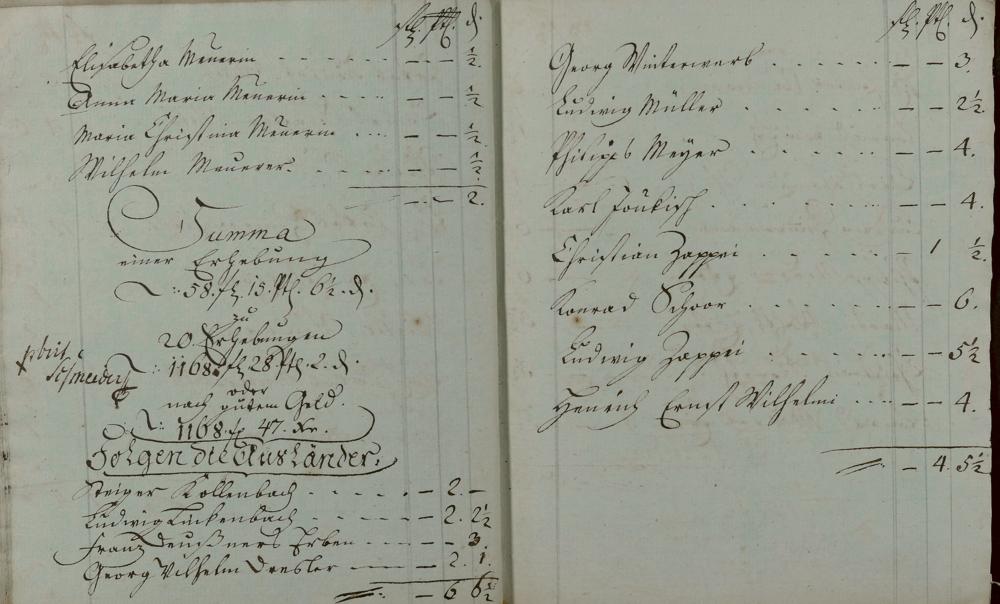 fl. Ptl. d.
Elisabetha Meuerin - - - - - - — — ½.
Anna Maria Meuerin - - - - — — ½
Maria Christina Meuerin - - - — — ½.
Wilhelm Meuerer. - - - - — — ½.
— — 2.
Summa
einer Erhebung
58. fl. 15. Ptl. 6½. d.
zu
20. Erhebungen
1168 fl. 28. Ptl. 2. d.
oder
nach gutem Geld.
1168. fl. 47. Kr.
Folgen die Ausländer.
Steiger Kollenbach - - - - - — 2. —
Ludwig Luckenbach - - - - — 2. 2½
Franz Deußners Erben - - - — — 3.
Georg Wilhelm Dresler — — 2. 1.
— 6 6½
fl. Ptl. d.
Georg Winterwerb . . . . . . — — 3.
Ludwig Müller . . . . . . — — 2½
Philipps Meyer . . . . . . — — 4.
Karl . . . . . . — — 4.
Christian Zappei . . . . . — 1 ½.
Konrad Schoor . . . . . . — — 6.
Ludwig Zappei . . . . . — — 5½
Henrich Ernst Wilhelmi . . . — — 4.
— 4. 5½